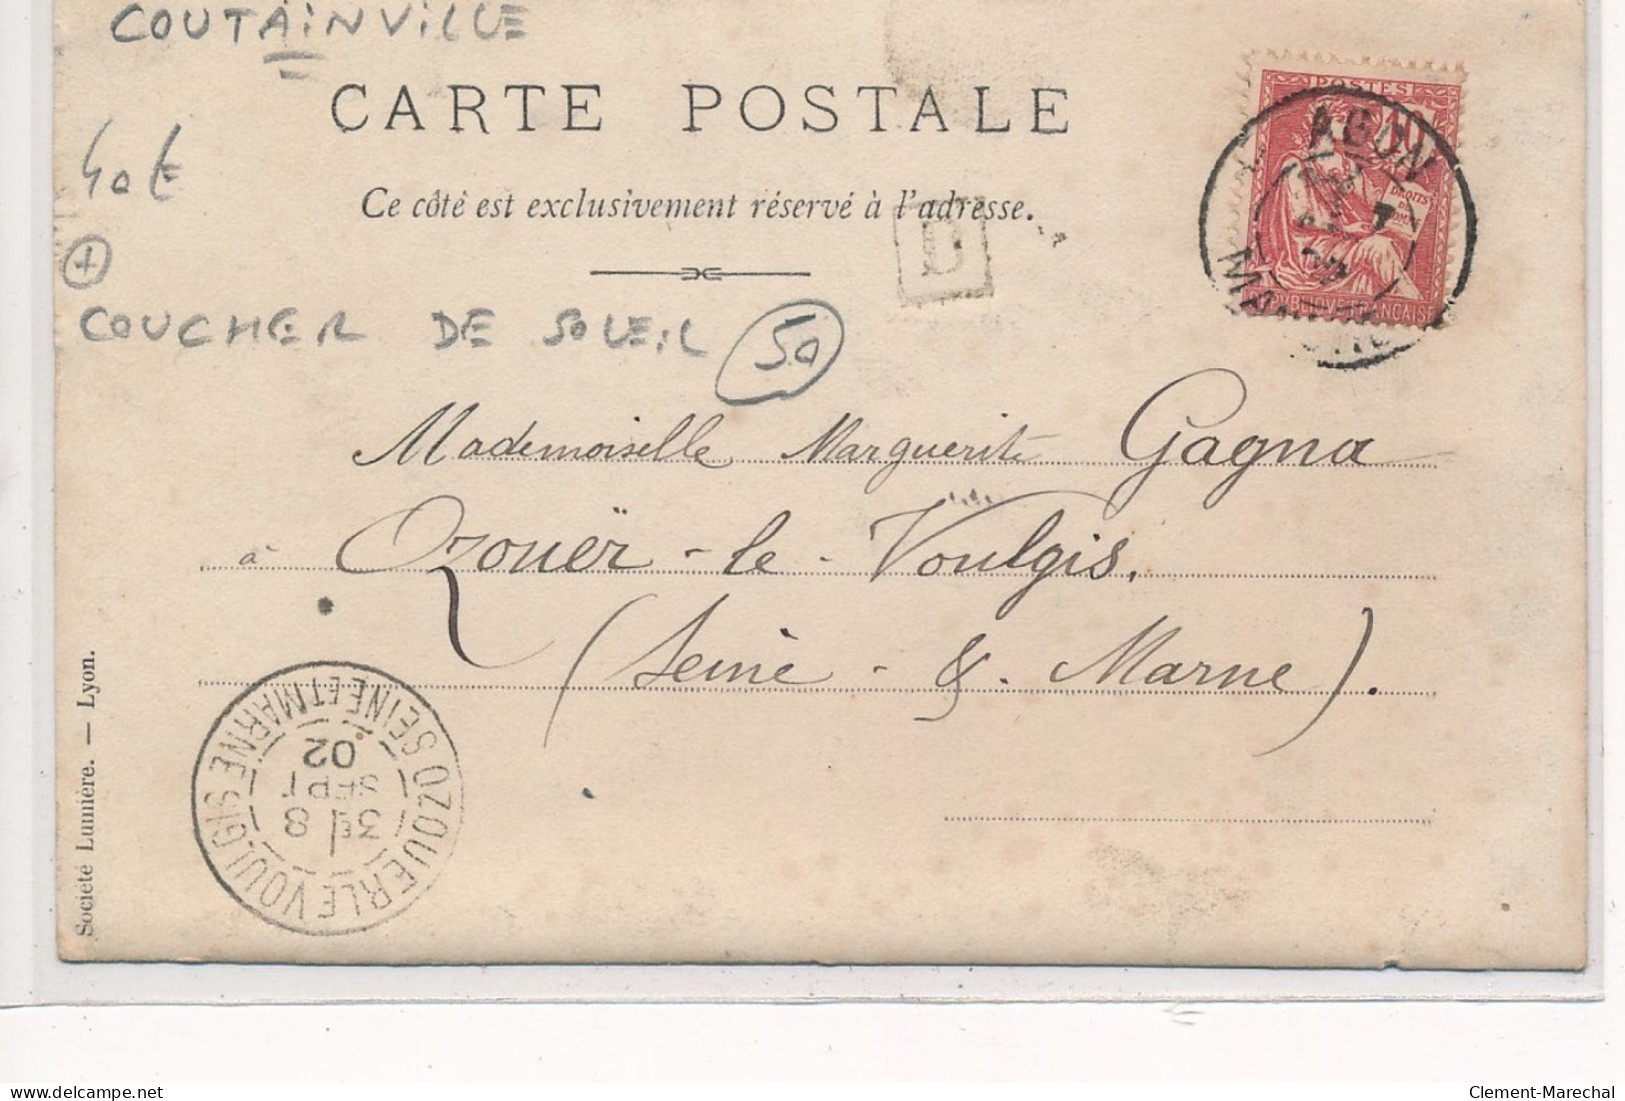 COUTAINVILLE
CARTE POSTALE
40€
Ce côté est exclusivement réservé à l'adresse.
+
D
COUCHER DE SOLEIL 50
POSTES
10
DROITS DE
AGON
7
Mademoiselle Marguerite Gagna
à Ozouër-le-Voulgis.
(Seine-&-Marne).
OZOUER LE VOULGIS SEINE ET MARNE
3E 8
SEPT
02
Société Lumière. — Lyon.
delcampe.net
Clement-Marechal